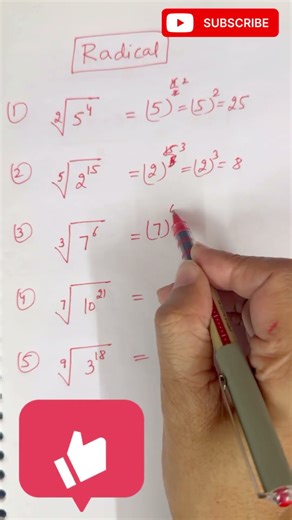 SUBSCRIBE
Radical
① ²√5⁴ = (5)^(4/2) ² = (5)² = 25
② ⁵√2¹⁵ = (2)^(15/5) ³ = (2)³ = 8
③ ³√7⁶ = (7)⁶
④ ⁷√10²¹ =
⑤ ⁹√3¹⁸ =